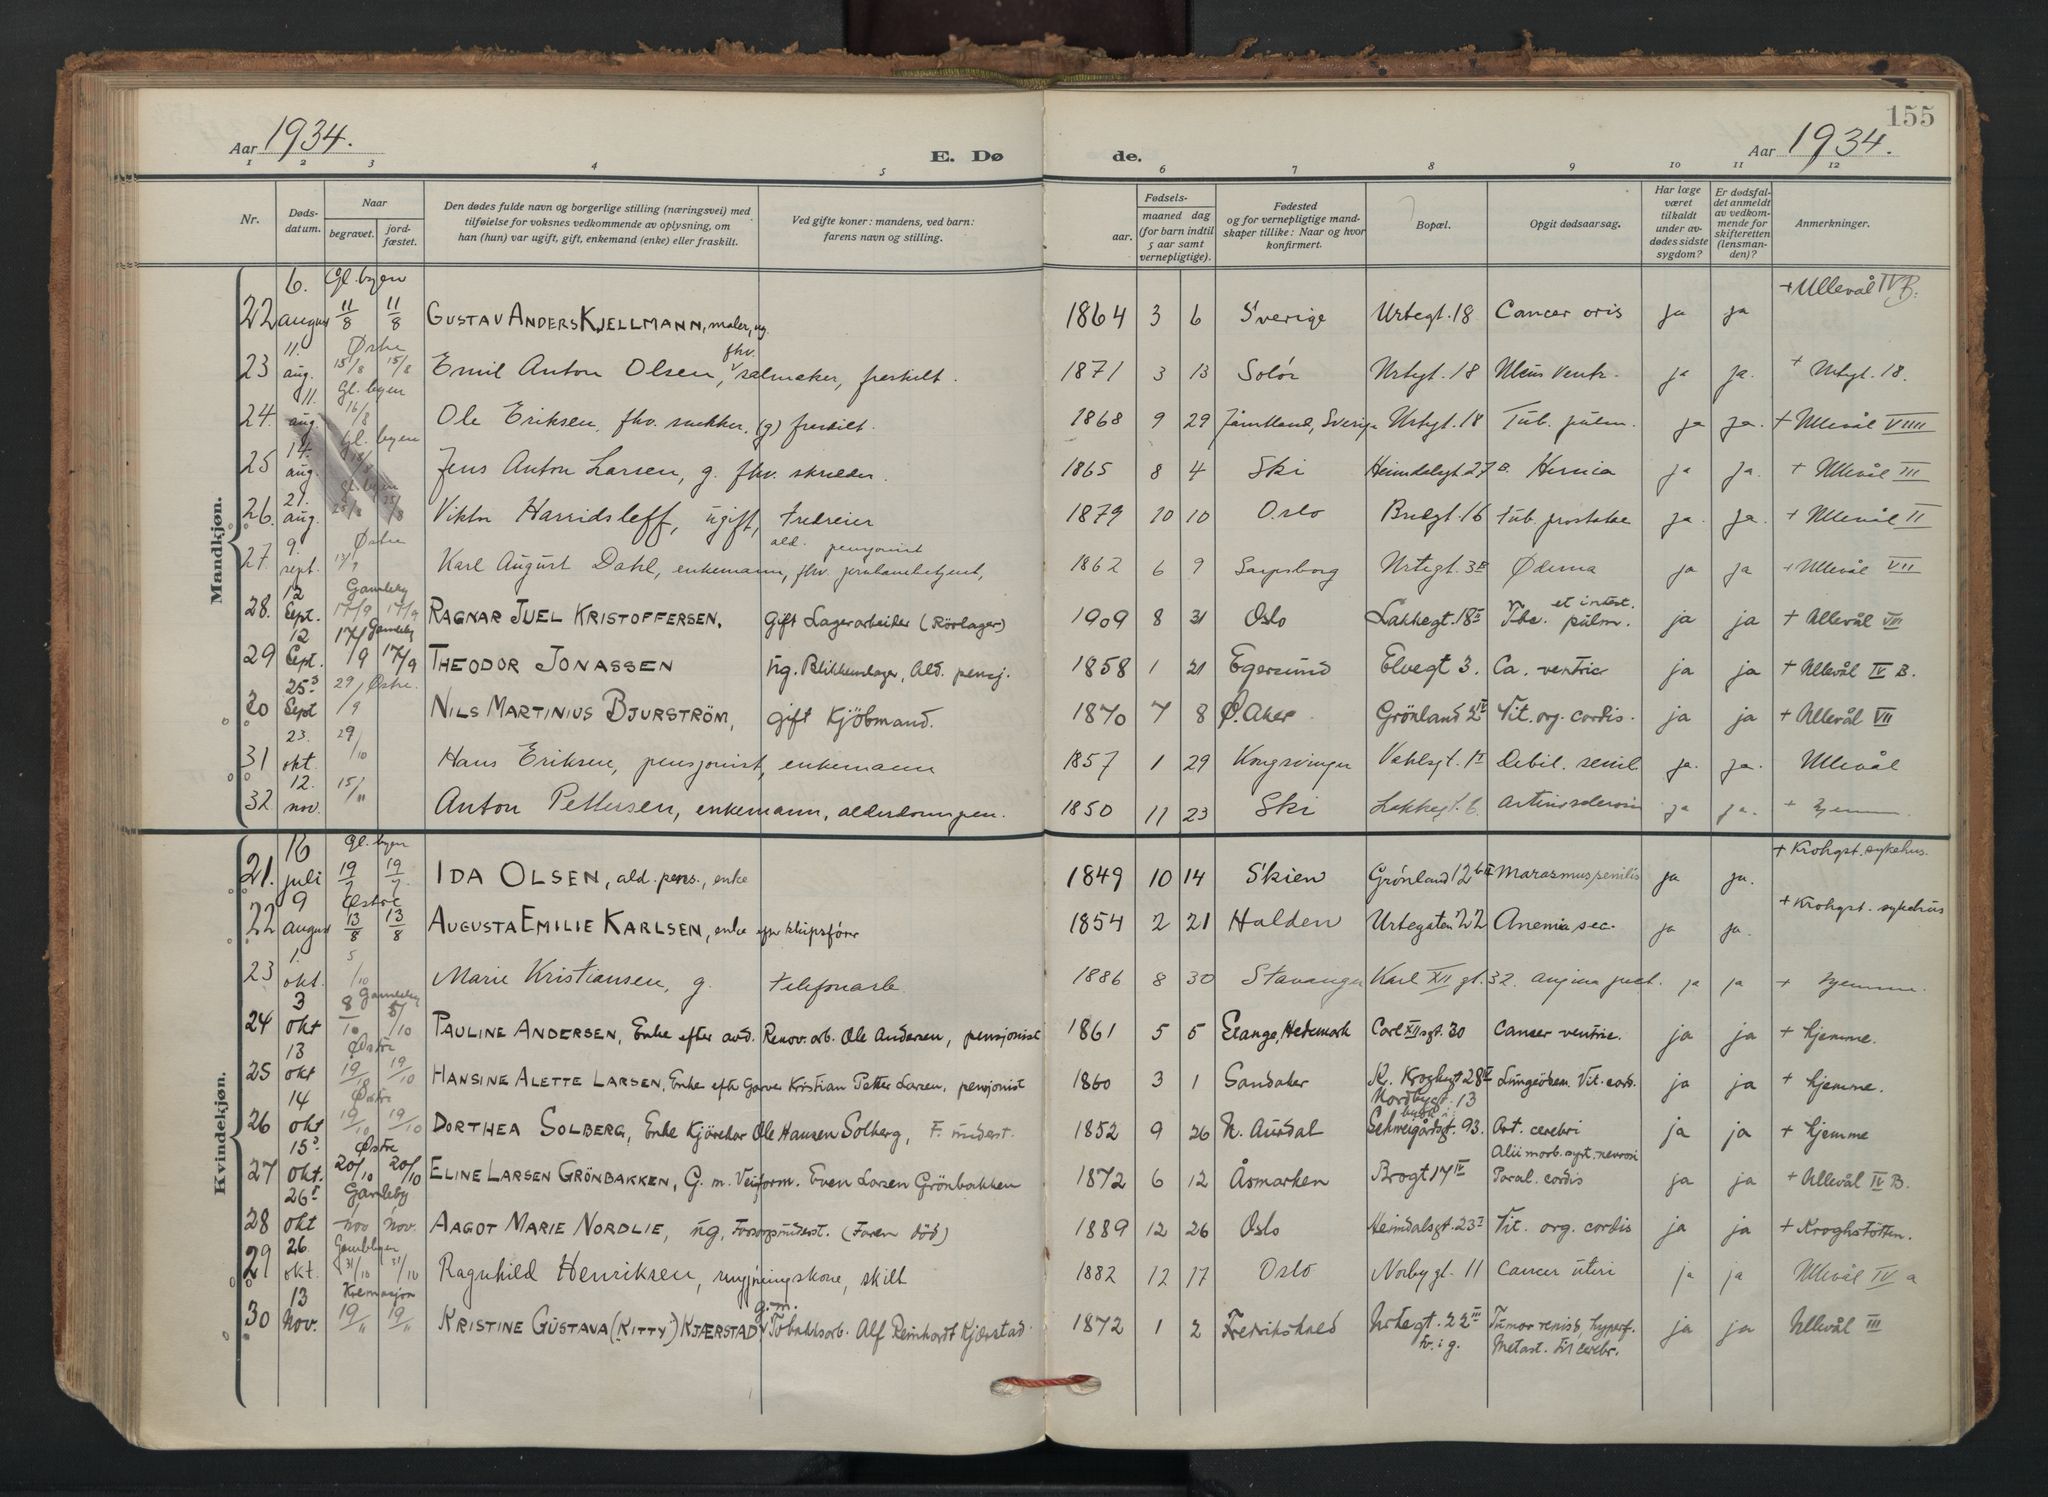 155
Aar 1934. E. Dø de. Aar 1934.
1 2 3 4 5 6 7 8 9 10 11 12
Nr. Døds-datum. Naar begravet. jord-fæstet. Den dødes fulde navn og borgerlige stilling (næringsvei) med tilføielse for voksnes vedkommende av oplysning, om han (hun) var ugift, gift, enkemand (enke) eller fraskilt. Ved gifte koner: mandens, ved barn: farens navn og stilling. Fødsels- aar. maaned dag (for barn indtil 5 aar samt vernepligtige). Fødested og for vernepligtige mand-skaper tillike: Naar og hvor konfirmert. Bopæl. Opgit dødsaarsag. Har læge været tilkaldt under av-dødes sidste sygdom? Er dødsfal-det anmeldt av vedkom-mende for skifteretten (lensman-den)? Anmerkninger.
Mandkjøn.
22 6. august Gl. byen 11/8 11/8 GUSTAV ANDERS KJELLMANN, maler, ug. 1864 3 6 Sverige Urtegt. 18 Cancer oris ja ja + Ullevål IV B.
23 11. aug. Østre 15/8 15/8 Emil Anton Olsen, fhv. salmaker, fraskilt. 1871 3 13 Solør Urtegt. 18 Ulcus ventr. ja ja. + Urtegt. 18.
24. 11. aug. Gl. byen 16/8 Ole Eriksen, fhv. snekker. (g) fraskilt. 1868 9 29 Jämtland, Sverige Urtegt. 18 Tub. pulm. ja ja. + Ullevål VIII
25 14. aug. Gl. byen 18/8 Jens Anton Larsen, g. fhv. skredder. 1865 8 4 Ski Heimdalsgt. 27 a. Hernia ja ja. + Ullevål III
26. 21. aug. Gl. byen 25/8 25/8 Viktor Harridsleff, ugift, fredreier 1879 10 10 Oslo Brugt. 16 Tub. prostatae ja. ja. + Ullevål II
27. 9. sept. Østre 13/9 Karl August Dahl, enkemann, fhv. jernbanebetjent, ald. pensjonist 1862 6 9 Sarpsborg Urtegt. 3 II Ødema ja ja + Ullevål VII
28. 12 Sept. Gamleby 17/9 17/9 RAGNAR JUEL KRISTOFFERSEN, gift Lagerarbeider (Rörlager) 1909 8 31 Oslo Lakkegt. 18 II Tbc. et intest. pulm. ja ja + Ullevål VII
29 12 Sept. Gamleby 17/9 17/9 THEODOR JONASSEN ug. Blikkenslager, Ald. pensj. 1858 1 21 Egersund Elvegt 3. Ca. ventric ja ja + Ullevål IV B.
30 25. Sept 29/9 Østre. NILS MARTINIUS BJURSTRÖM, gift Kjöbmand. 1870 7 8 Ø. Aker Grönland 2 IV Vit. org. cordis. ja ja + Ullevål VII
31 23. okt. 29/10 Hans Eriksen, pensjonist, enkemann 1857 1 29 Kongsvinger Vahlsgt. 1 II Debil. senil ja. ja. Ullevål
32. 12. nov. 15/11 Anton Pettersen, enkemann, alderdomspen. 1850 11 23 Ski Lakkegt. 6. Arteriosclerosis ja ja. + hjemme.
Kvindekjøn.
21. 16 juli Gl. byen 19/7 19/7. IDA OLSEN, ald. pens., enke 1849 10 14 Skien Grønland 12 b II Marasmus senilis ja ja. + Krohgst. sykehus.
22 9 august Østre 13/8 13/8 AUGUSTA EMILIE KARLSEN, enke efter skipsfører 1854 2 21 Halden Urtegaten 22 Anemia sec. ja ja. + Krohgst. sykehus
23 1. okt. 5/10 Marie Kristiansen, g. telefonarb. 1886 8 30 Stavanger Karl XII gt. 32. angina pect. ja ja + hjemme.
24 3 okt Gamleby 8/10 5/10 PAULINE ANDERSEN, Enke efter avd. Renov. arb. Ole Andersen, pensjonist 1861 5 5 Stange, Hedemark Carl XII sgt. 30 Cancer ventric. ja ja + hjemme.
25 13 okt Østre 19/10 19/10 HANSINE ALETTE LARSEN, Enke efter Garver Kristian Petter Larsen, pensjonist 1860 3 1 Sandaker K. Kroghsgt 28 II Lungeödem. Vit. cord. ja ja + hjemme.
26 14 okt Østre 19/10 19/10 DORTHEA SOLBERG, Enke Kjörekar Ole Hansen Solberg, F. underst. 1852 9 26 N. Aurdal Nordbygt. 13 Schweigårdsgt. 93. Art. cerebri ja ja + hjemme
27 15. okt. Østre 20/10 20/10 ELINE LARSEN GRÖNBAKKEN, G. m. Veiform. Even Larsen Grönbakken 1872 6 12 Åsmarken Brogt 17 IV Alii morb. syst. nervosi Paral. cordis ja ja + Ullevål IV B.
28 26 okt Gamleby 1/nov nov. AAGOT MARIE NORDLIE, ug. Forsorgsunderst. (Faren död) 1889 12 26 Oslo Heimdalsgt. 23 I Vit. org. cordis ja ja + Kroghstötten.
29 26. okt. Gamlebyen 31/10 31/10 Ragnhild Henriksen, rengjøringskone, skilt 1882 12 17 Oslo Norbygt. 11 Cancer uteri ja ja Ullevål IV a
30 13 Nov. Kremasjon 19/11 19/11 KRISTINE GUSTAVA (KITTY) KJÆRSTAD g. m. Tobakksarb. Alf Reinhardt Kjærstad 1872 1 2 Fredrikshald Urtegt. 22 III Fr. i g. Tumor renis d, hyperf. Metast. til cerebr. ja ja Ullevål III